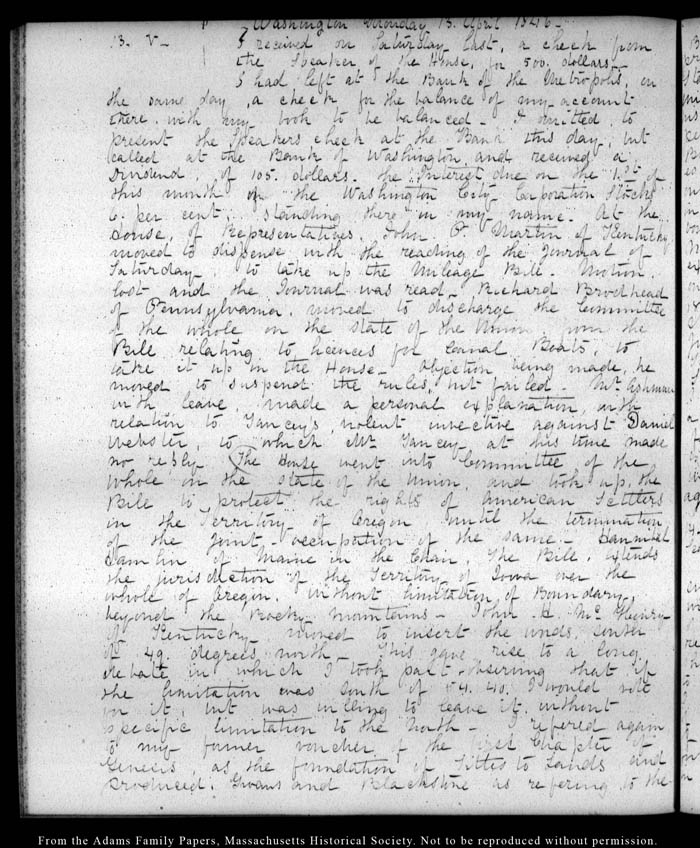 Washington Monday 13. April 1846-
13. V- I received on Saturday last, a check from
the Speaker of the House, for 500. dollars-
I had left at the Bank of the Metropolis, on
the same day, a check for the balance of my account
there with my book to be balanced- I omitted to
present the Speakers check at the Bank this day, but
called at the Bank of Washington, and received a
Dividend, of 105. dollars- the Interest due on the 1st of
this month on the Washington City Corporation Stocks
6. per cent, standing there in my name- At the
House, of Representatives, John P. Martin of Kentucky
moved to dispense with the reading of the Journal of
Saturday- to take up the Mileage Bill- Motion
lost and the Journal was read- Richard Brodhead
of Pennsylvania, moved to discharge the Committee
of the whole on the state of the Union from the
Bill relating to licences for Canal Boats, to
take it up in the House- Objection being made, he
moved to suspend the rules, but failed- Mr Ashmun
with leave, made a personal explanation, with
relation to Yancey's violent invective against Daniel
Webster, to which Mr Yancey at this time made
no reply- The House went into Committee of the
whole on the state of the Union, and took up the
Bill to protect the rights of American Settlers
in the Territory of Oregon until the termination
of the joint-occupation of the same- Hannibal
Hamlin of Maine in the Chair, The Bill, extends
the jurisdiction of the Territory of Iowa over the
whole of Oregon, without limitation of Boundary,
beyond the Rocky mountains- John H. McHenry
of Kentucky moved to insert the words, south
of 49. degrees north- This gave rise to a long
debate in which I took part- observing that if
the limitation was South of 54. 40. I would vote
for it, but was willing to leave it without
specific limitation to the North- I refered again
to my former voucher, of the first Chapter of
Genesis, as the foundation of Titles to Lands and
produced, and Blackstone as refering to the
From the Adams Family Papers, Massachusetts Historical Society. Not to be reproduced without permission.